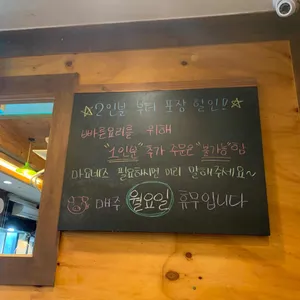 ☆2인분 부터 포장 할인!!☆
빠른요리를 위해
"1인분" 추가 주문은 "불가능"함
마요네즈 필요하시면 미리 말해주세요~
매주 월요일 휴무입니다